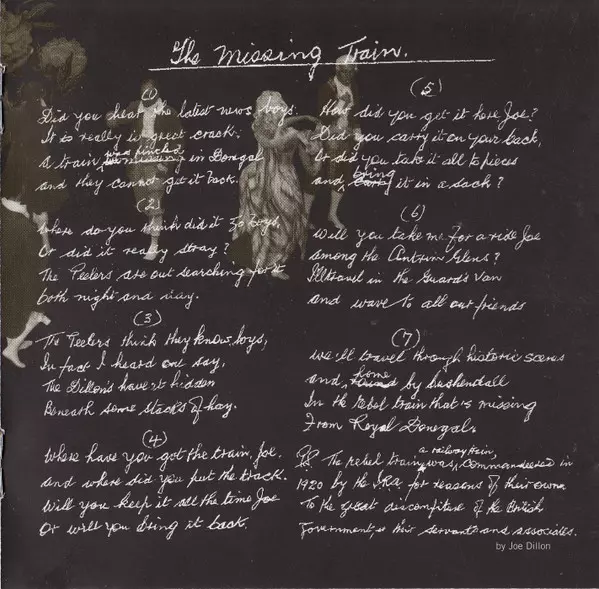 The Missing Train.
(1)
Did you hear the latest news boys.
It is really great crack.
A train was hijacked in Donegal
and they cannot get it back.
(2)
Where do you think did it go boys,
Or did it really stray?
The Peelers are out searching for it
both night and day.
(3)
The Peelers think they know, boys,
In fact I heard one say,
The Dillons have it hidden
Beneath some stacks of hay.
(4)
Where have you got the train, Joe.
and where did you put the track.
Will you keep it all the time Joe
Or will you bring it back.
(5)
How did you get it here Joe?
Did you carry it on your back,
Or did you take it all to pieces
and bring it in a sack?
(6)
Will you take me for a ride Joe
among the Antrim Glens?
I'll travel in the Guards Van
and wave to all our friends
(7)
We'll travel through historic scenes
and home by Cushendall
In the Rebel train that is missing
From Royal Donegal.
P.S. The rebel train, a railway train, was commandeered in
1920 by the I.R.A. for reasons of their own
To the great discomfiture of the British
Government, or their servants and associates.
by Joe Dillon